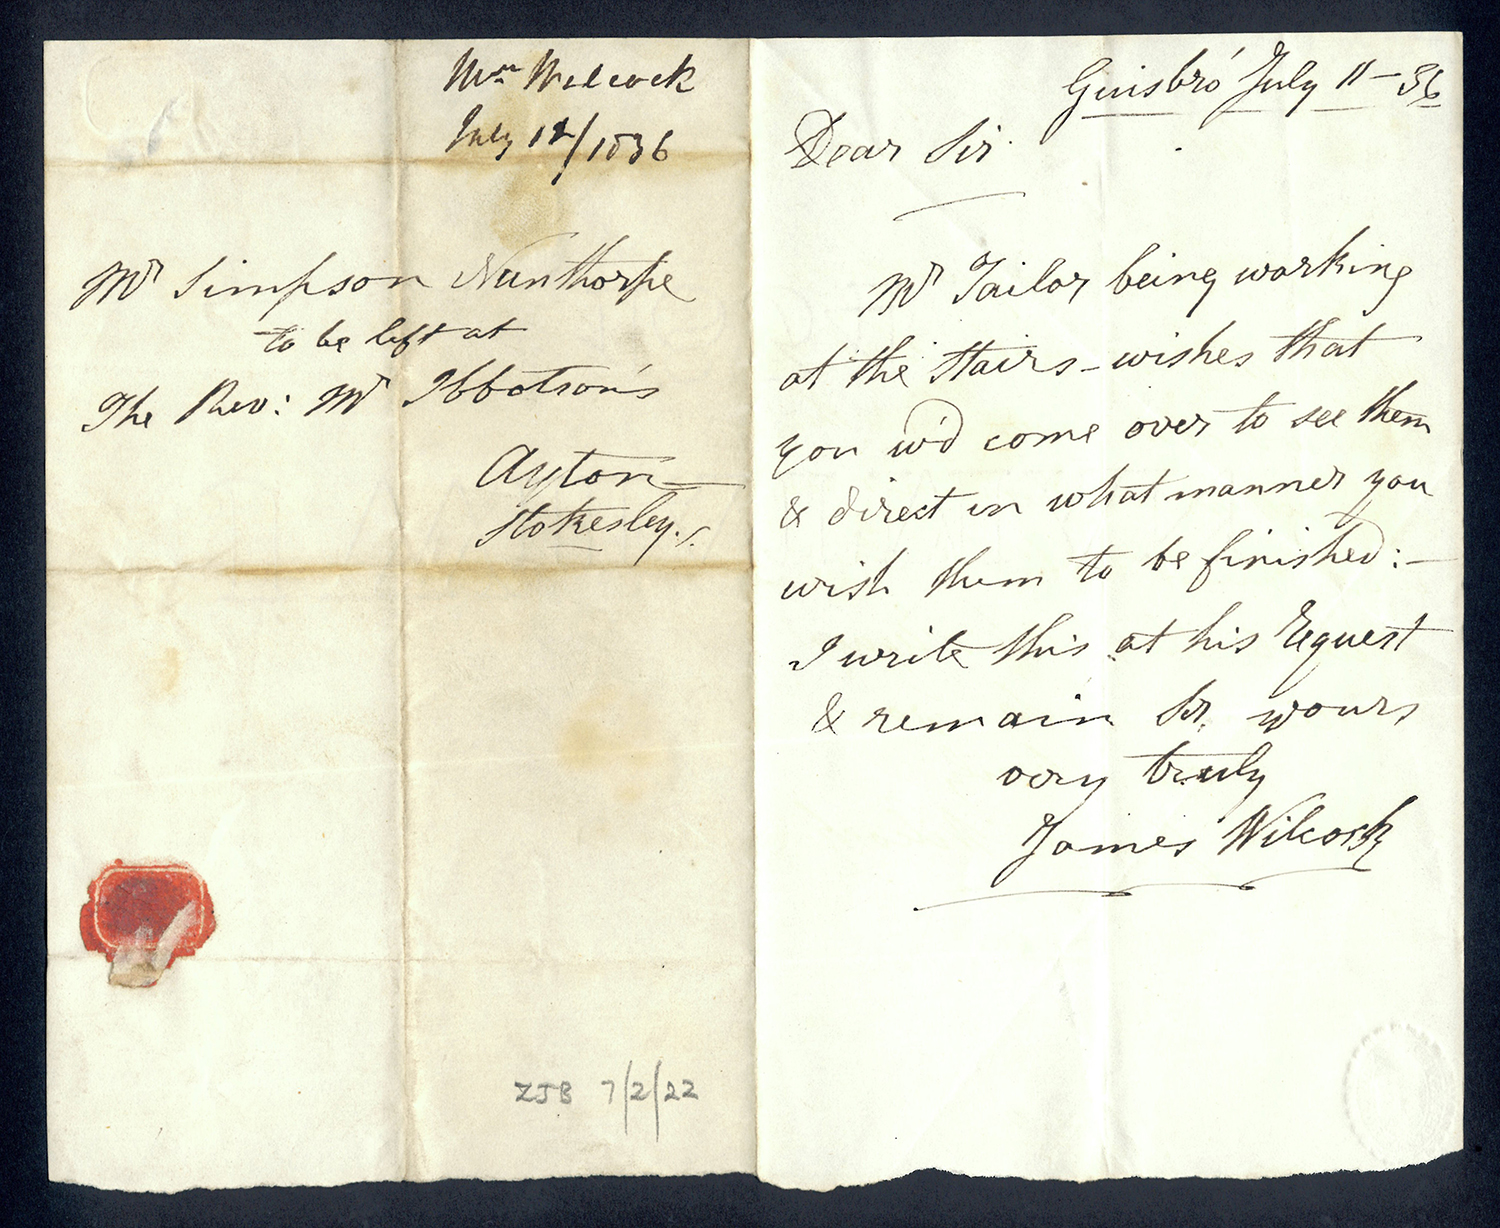 Wm Wilcock
July 12/1836
Mr Simpson Nunthorpe
to be left at
The Rev: Mr Ibbotson's
Ayton
Stokesley.
ZJB 7/2/22
Guisbro' July 11 - 36
Dear Sir
Mr Tailor being working
at the Stairs - wishes that
you wd come over to see them
& direct in what manner you
wish them to be finished: -
I write this at his request
& remain Sir yours
very truly
James Wilcock